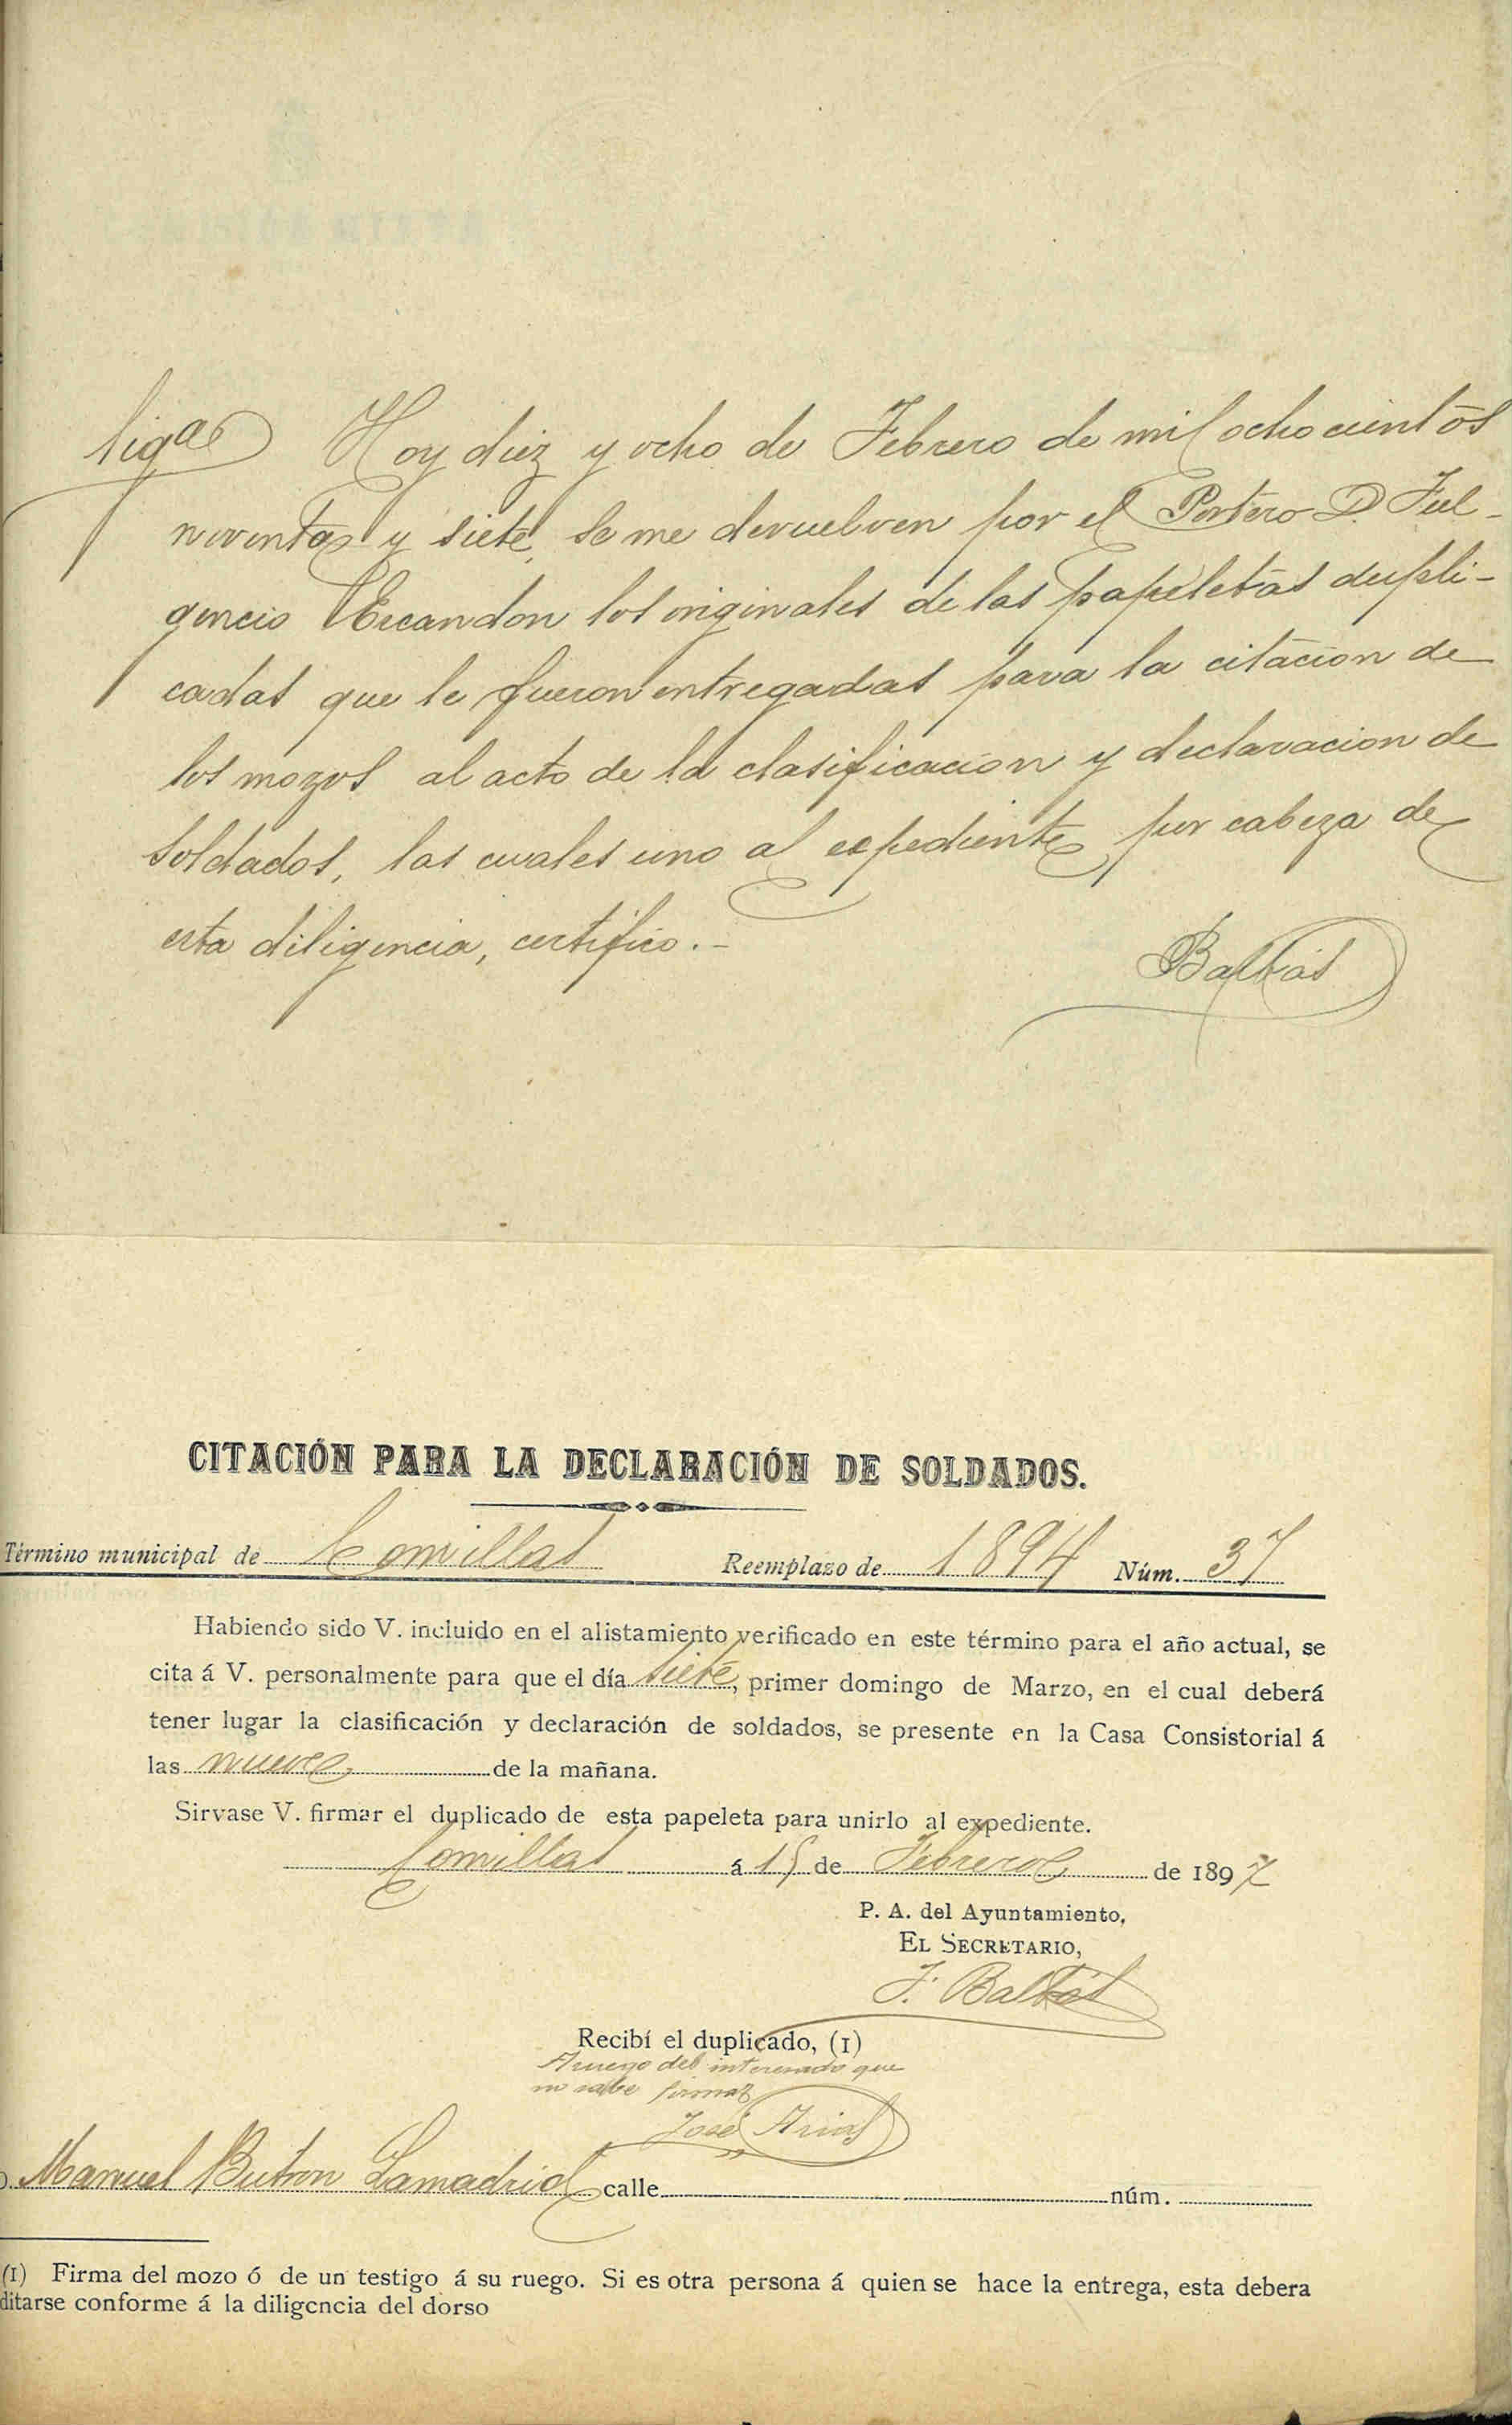 lig.as Hoy diez y ocho de Febrero de mil ochocientos
noventa y siete, se me devuelven por el Portero D. Ful-
gencio Escandon los originales de las papeletas dupli-
cadas que le fueron entregadas para la citacion de
los mozos al acto de la clasificacion y declaracion de
soldados, las cuales uno al expediente por cabeza de
esta diligencia, certifico.-
Balbás
CITACIÓN PARA LA DECLARACIÓN DE SOLDADOS.
Término municipal de Comillas Reemplazo de 1894 Núm. 37
Habiendo sido V. incluido en el alistamiento verificado en este término para el año actual, se
cita á V. personalmente para que el día siete, primer domingo de Marzo, en el cual deberá
tener lugar la clasificación y declaración de soldados, se presente en la Casa Consistorial á
las nueve de la mañana.
Sirvase V. firmar el duplicado de esta papeleta para unirlo al expediente.
Comillas á 15 de Febrero de 1897
P. A. del Ayuntamiento,
EL SECRETARIO,
F. Balbás
Recibí el duplicado, (1)
A ruego del interesado que
no sabe firmar
José Arias
D. Manuel Butron Lamadrid calle núm.
(1) Firma del mozo ó de un testigo á su ruego. Si es otra persona á quien se hace la entrega, esta debera
ditarse conforme á la diligencia del dorso